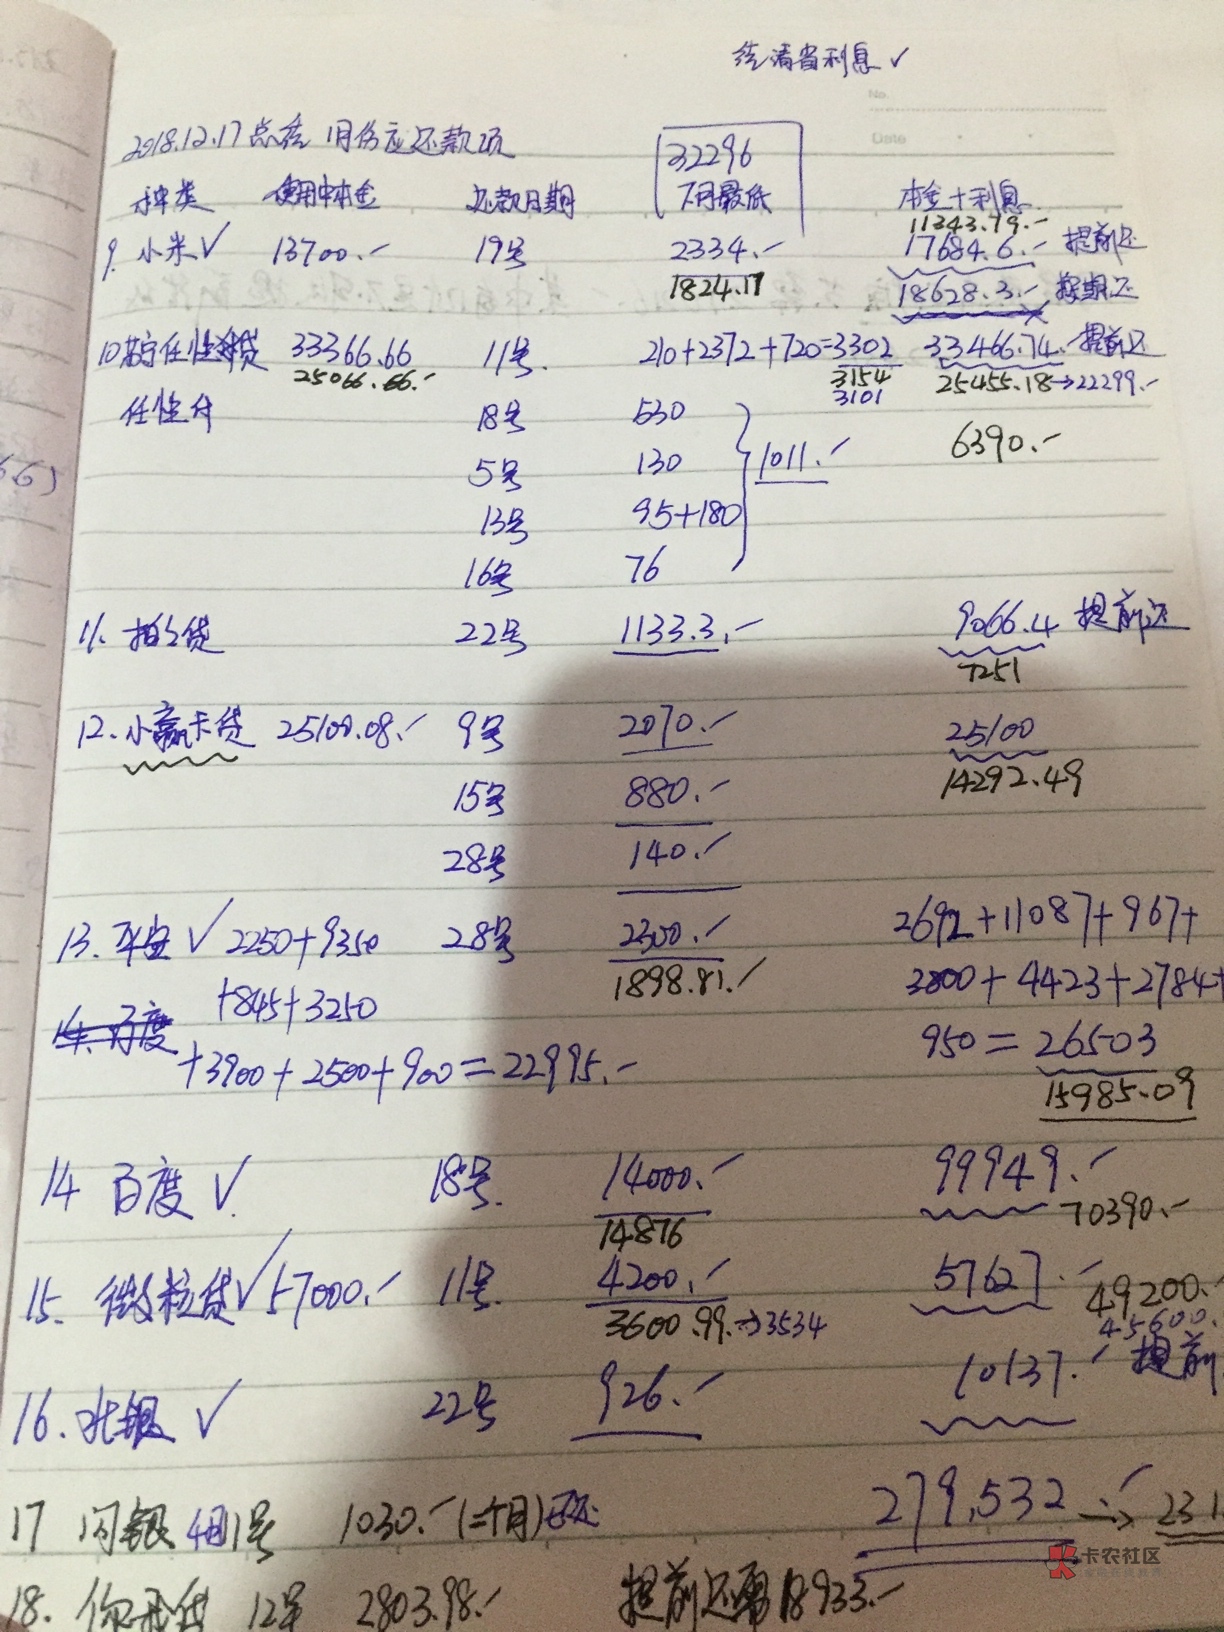 结清省利息✓
No.
Date
2018.12.17总结 1月份应还款项
32296
种类 使用中本金 还款日期 下月最低 本金+利息
11343.79.-
9. 小米✓ 13700.- 19号 2334.- 17684.6.- 提前还
1824.17 18628.3.- 按期还
10.苏宁任性贷 33366.66 11号. 210+2372+720=3302 33466.74.- 提前还
25066.66.- 3154 25455.18→22299.-
3101
任性付 18号 530
6390.-
5号 130 1011.-
13号 95+180
16号 76
11. 拍拍贷 22号 1133.3.- 9066.4 提前还
7251
12.小赢卡贷 25100.08.- 9号 2070.- 25100
14292.49
15号 880.-
28号 140.-
13. 平安✓ 2250+9350 28号 2300.- 2692+11087+967+
+845+3250 1898.81.- 3800+4423+2784+
14.百度
+3900+2500+900=22995.- 950=26503
15985.09
14 百度✓ 18号. 14000.- 99949.-
14876 70390.-
15. 微粒贷✓57000.- 11号. 4200.- 57627.- 49200.-
3600.99.→3534 45600.
16.北银✓ 22号 926.- 10137.- 提前
17 闪银 4月1号 1030.-(二个月)还 279,532→231
18. 你我贷 12号 2803.98.- 提前还需18933.-
卡农社区